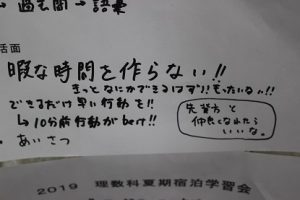 → 過去問 → 語彙
活面
暇な時間を作らない!!
きっとなにかできるはず!もったいない!!
できるだけ早い行動を!!
↳ 10分前行動がbest!!
・あいさつ
先輩方と
仲良くなれたら
いいな。
2019 理数科夏期宿泊学習会